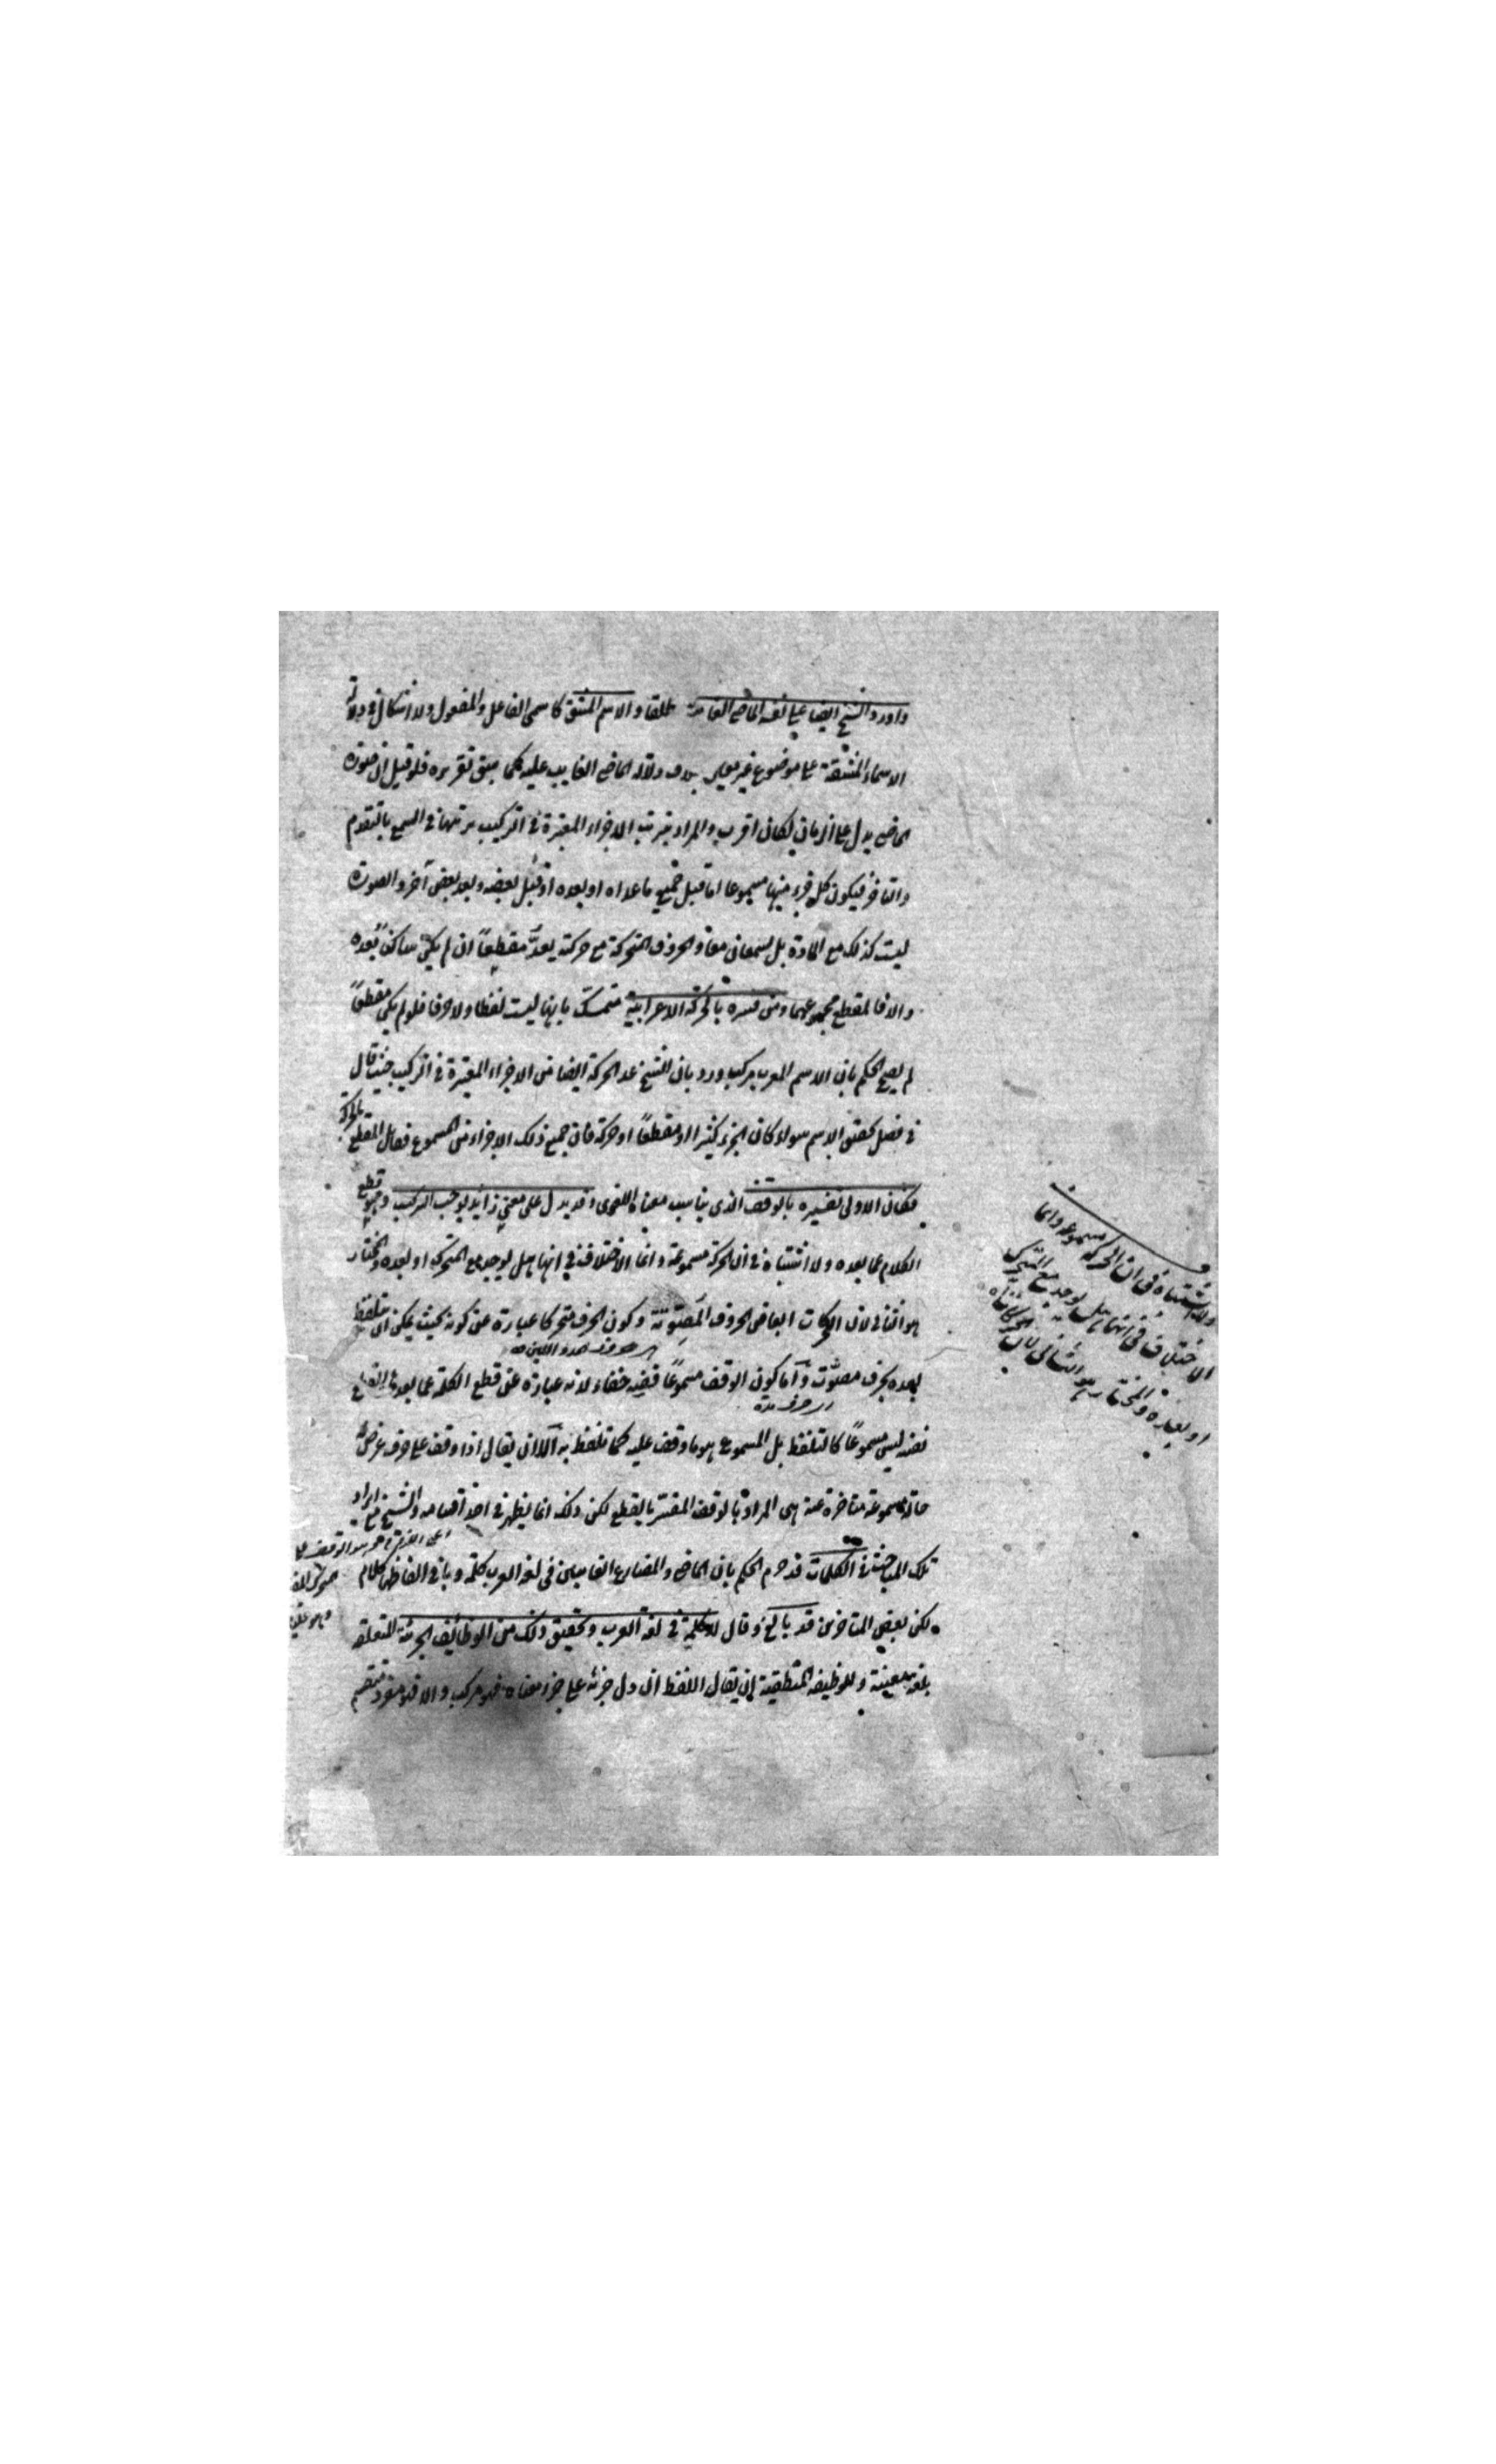 واورد الشيخ ايضا على نفسه الماضى الغايب مطلقا والاسم المشتق كاسمى الفاعل والمفعول ولا اشكال فى دلالة
الاسماء المشتقة على موضوع غير معين بدون دلالة الماضى الغايب عليه كما سبق تقريره فلو قيل ان صورة
الماضى يدل على الزمان لكان اقرب والمراد بترتب الاجزاء المعتبرة فى التركيب ترتبها فى السمع بالتقدم
والتاخر فيكون كل جزء منها مسموعا اما قبل جميع ما عداه او بعده او قبل بعضه وبعد بعض آخر والصورة
ليست كذلك مع المادة بل يسمعان معا والحروف المتحركة مع حركته يعد مقطعاً ان لم يكن ساكن بعده
والا فالمقطع مجموعهما ومن فسره بالحركة الاعرابية متمسك بانها ليست لفظا ولا حرفا فلو لم يكن مقطعاً
لم يصح الحكم بان الاسم المعرب مركب ورد بان الشيخ عد الحركة ايضا من الاجزاء المعتبرة فى التركيب حيث قال
فى فصل تحقق الاسم سواء كان الجزء كثيرا او مقطعاً او حركة فان جميع ذلك الاجزاء من المسموع فقابل المقطع بالحركة
فكان الاولى تفسيره بالوقف الذى يناسب معناه اللغوى وقد يدل على معنى زايد يوجب التركيب وهو قطع
الكلام عما بعده ولا اشتباه فى ان الحركة مسموعة وانما الاختلاف فى انها هل يوجد مع المتحرك او بعده والمختار
هو الثانى لان الحركات ابعاض الحروف المصوتة وكون الحرف متحركا عبارة عن كونه بحيث يمكن ان يتلفظ
اى حروف المد واللين
بعده بحرف مصوّت وأما كون الوقف مسموعاً ففيه خفاء لانه عبارة عن قطع الكلمة عما بعدها والقطع
اى حرف مدة
نفسه ليس مسموعاً كالتلفظ بل المسموع هو ما وقف عليه كما تلفظ به الا ان يقال اذا وقف على حرف عرض له
حالة مسموعة متاخرة عنه هى المراد بالوقف المفسر بالقطع لكن ذلك انما يظهر فى احد اقسامه والشيخ مع ايراد
تلك المباحث فى الكلمات قد جزم الحكم بان الماضى والمضارع الغايبين فى لغة العرب كلمة وباقى الفاظها كلام
لكن بعض المتاخرين قد بالغ وقال لا كلمة فى لغة العرب وتحقيق ذلك من الوظائف الجزئية المتعلقة
بلغة معينة والوظيفة المنطقية ان يقال اللفظ ان دل جزئه على جزء معناه فهو مركب والا فهو مفرد منقسم
ولا اشتباه فى ان الحركة مسموعة وانما
الاختلاف فى انها هل يوجد مع المتحرك
او بعده والمختار هو الثانى لان الحركات